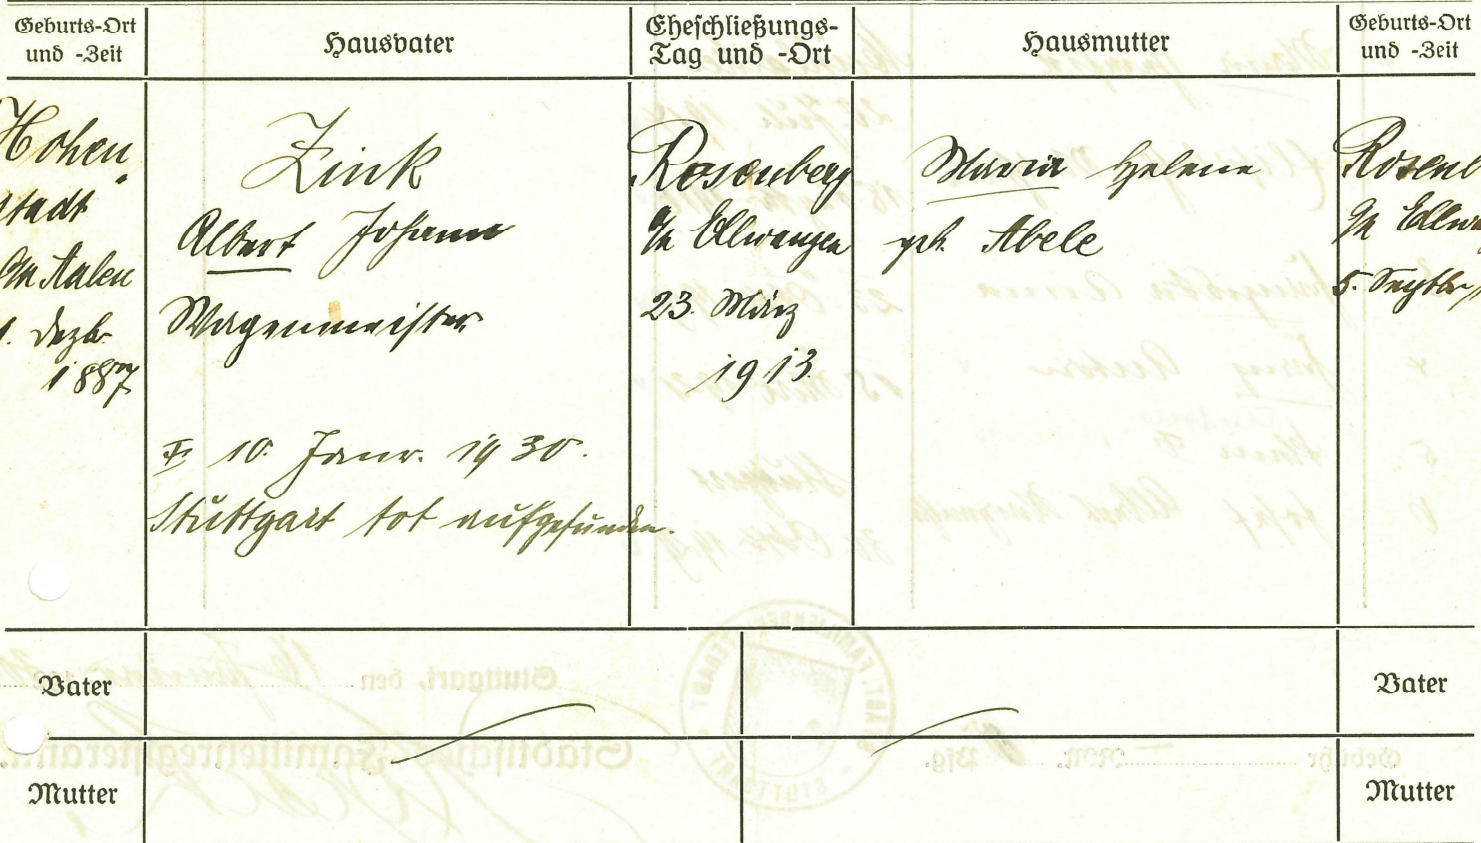 Geburts-Ort
und -Zeit
Hausvater
Eheschließungs-
Tag und -Ort
Hausmutter
Geburts-Ort
und -Zeit
Hohen-
stadt
OA Aalen
1. Dezbr.
1887
Zink
Albert Johann
Wagenmeister
10. Janr. 1930.
Stuttgart tot aufgefunden.
Rosenberg
OA Ellwangen
23. März
1913.
Maria Helene
geb. Abele
Rosenb
OA Ellwa
5. Septbr.
Vater
Vater
Mutter
Mutter